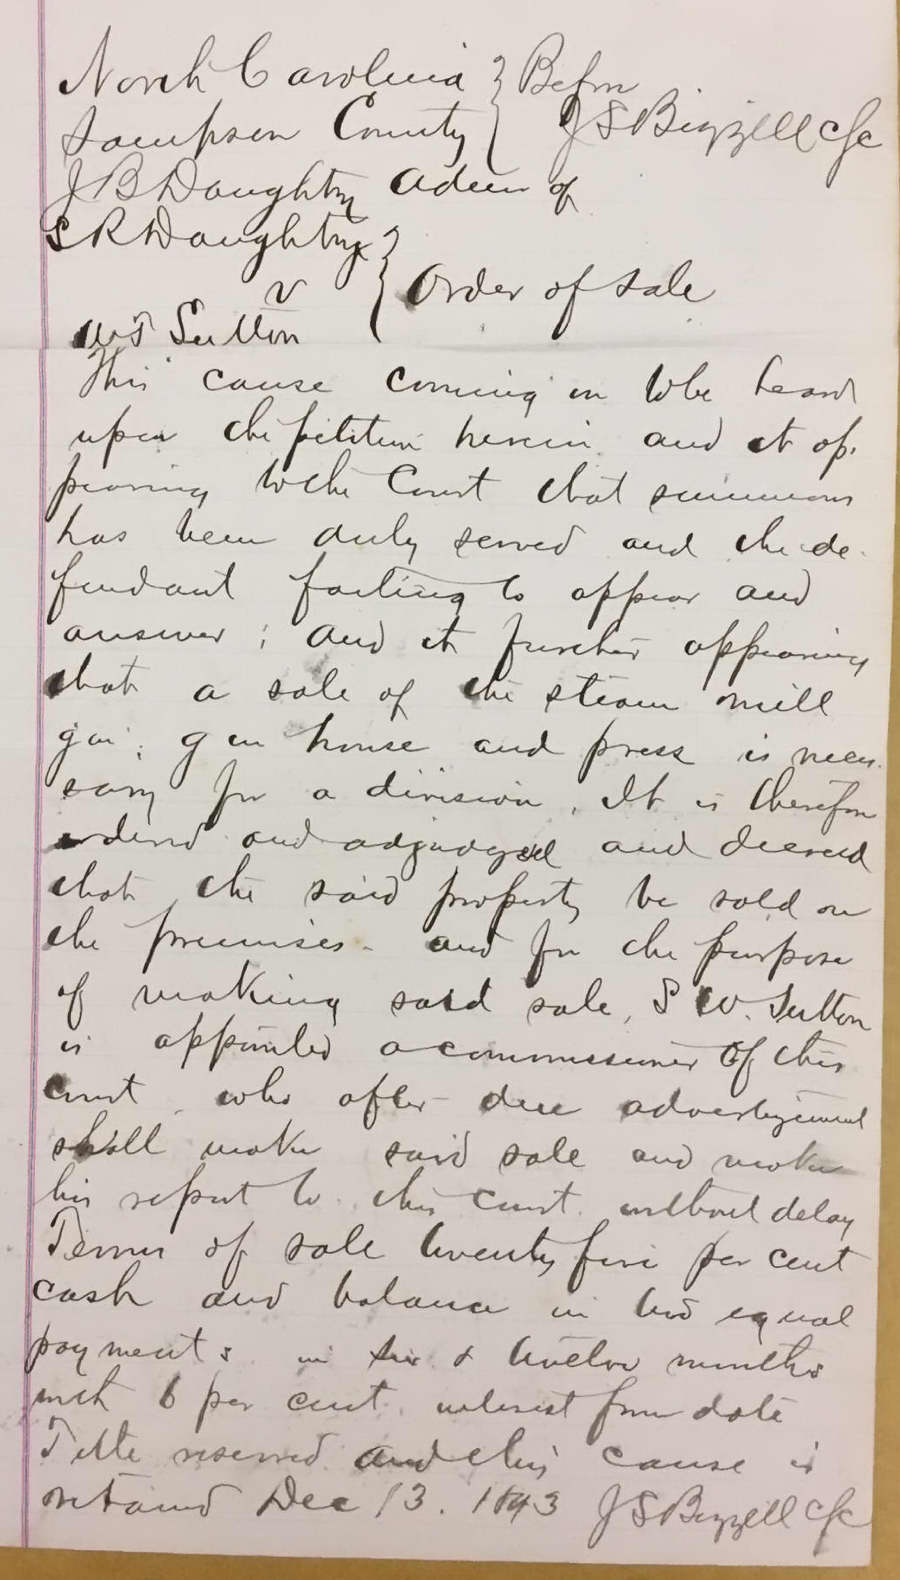 North Carolina } Before
Sampson County } J S Bizzell CSC
J B Daughtry Adm of
S R Daughtry }
v } Order of Sale
W J Sutton
This cause coming on to be heard
upon the petition herein and it ap-
pearing to the Court that summons
has been duly served and the de-
fendant failing to appear and
answer ; and it further appearing
that a sale of the steam mill
gin, gin house and press is neces-
sary for a division. It is therefore
ordered and adjudged and decreed
that the said property be sold on
the premises - and for the purpose
of making said sale, S W. Sutton
is appointed a commissioner of this
court who after due advertizement
shall make said sale and make
his report to this court without delay
Terms of sale twenty five per cent
cash and balance in two equal
payments in six & twelve months
with 6 per cent interest from date
Title reserved and this cause is
retaind Dec 13. 1893 J S Bizzell CSC